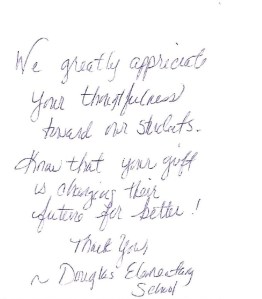 We greatly appreciate
your thougtfulness
toward our students.
Know that your gift
is changing their
future for better!
Thank You,
~ Douglas Elementary
School